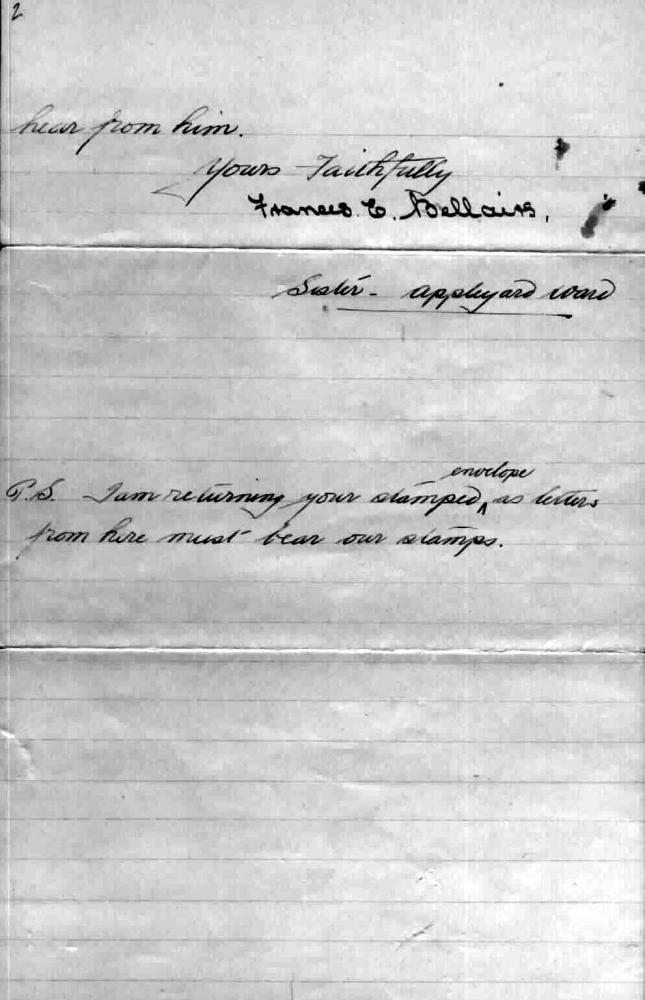 2
hear from him.
Yours Faithfully
Frances E. Bellairs,
Sister - Appleyard ward
P.S. I am returning your stamped envelope as letters
from here must bear our stamps.